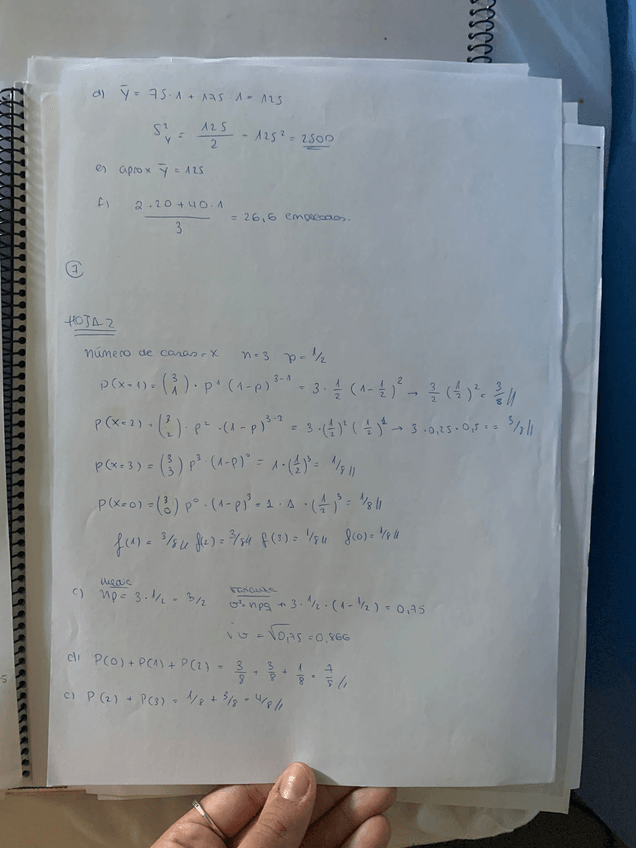 d) Ȳ = 75·1 + 175·1 = 125
S²Y = 125/2 - 125² = 2500
e) aprox Ȳ = 125
f) (2·20+40·1)/3 = 26,6 empleados.
7
HOJA 2
número de caras = x n=3 p=1/2
P(x=1) = (3 1) · p¹ (1-p)³⁻¹ = 3 · 1/2 (1-1/2)² → 3/2 (1/2)² = 3/8 //
P(x=2) = (3 2) · p² · (1-p)³⁻² = 3·(1/2)² (1/2)¹ → 3·0,25·0,5 = = 3/8 //
P(x=3) = (3 3) p³ · (1-p)⁰ = 1·(1/2)³ = 1/8 //
P(x=0) = (3 0) p⁰ · (1-p)³ = 1·1·(1/2)³ = 1/8 //
f(1) = 3/8 // f(2) = 3/8 // f(3) = 1/8 // f(0) = 1/8 //
c) media varianza
np = 3·1/2 = 3/2 σ² = npq = 3·1/2·(1-1/2) = 0,75
; σ = √0,75 = 0,866
d) P(0) + P(1) + P(2) = 3/8 + 3/8 + 1/8 = 7/8 //
e) P(2) + P(3) = 1/8 + 3/8 = 4/8 //